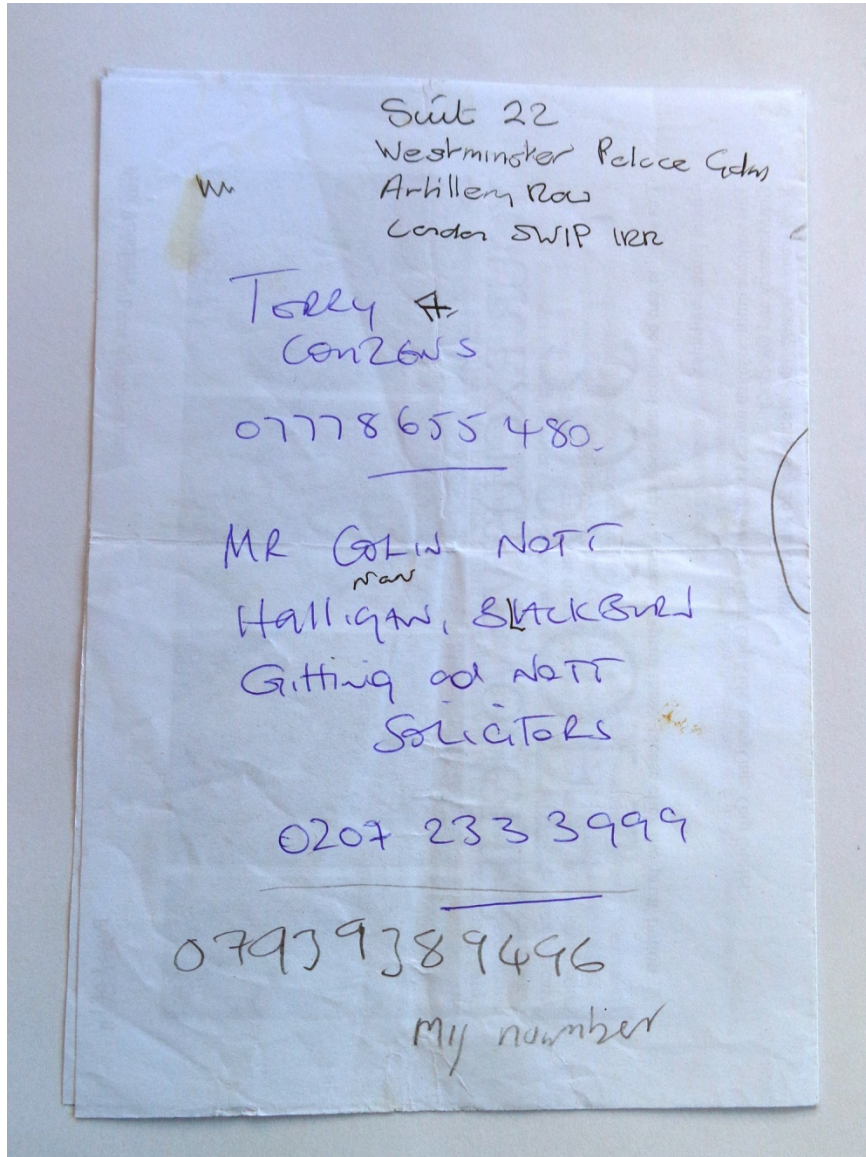 Suit 22
Westminster Palace Gdns
Artillery Row
London SW1P 1RR
TERRY
COUZENS
07778 655 480.
MR COLIN NOTT
Halligan, BLACKBURN
Gitting and NOTT
SOLICITORS
0207 233 3999
07939389496
My number